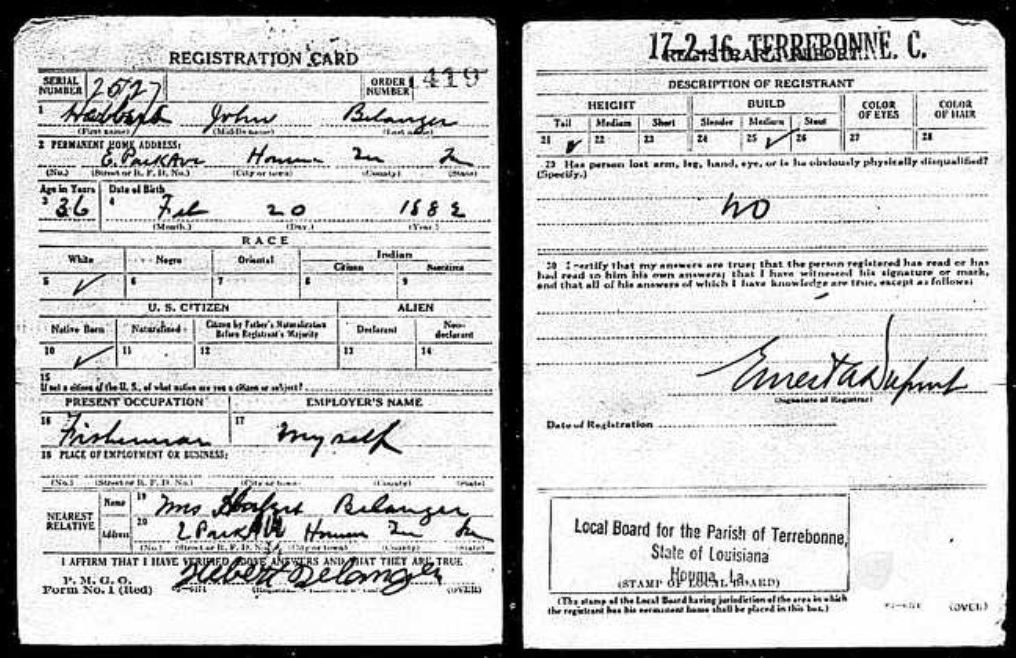 REGISTRATION CARD
SERIAL NUMBER 2527 ORDER NUMBER 419
1 John Belanger
(First name) (Middle name) (Last name)
2 PERMANENT HOME ADDRESS:
E. Park Ave Houma
(No.) (Street or R. F. D. No.) (City or town) (County) (State)
Age in Years Date of Birth
3 36 4 Feb 20 1882
(Month.) (Day.) (Year.)
RACE
White Negro Oriental Indian
Citizen Noncitizen
5 ✓ 6 7 8 9
U. S. CITIZEN ALIEN
Native Born Naturalized Citizen by Father's Naturalization Before Registrant's Majority Declarant Non-declarant
10 ✓ 11 12 13 14
15
If not a citizen of the U. S., of what nation are you a citizen or subject?
PRESENT OCCUPATION EMPLOYER'S NAME
16 Fisherman 17 Myself
18 PLACE OF EMPLOYMENT OR BUSINESS:
(No.) (Street or R. F. D. No.) (City or town) (County) (State)
NEAREST RELATIVE Name 19 Mrs Belanger
Address 20 Park Ave Houma
(No.) (Street or R. F. D. No.) (City or town) (County) (State)
I AFFIRM THAT I HAVE VERIFIED ABOVE ANSWERS AND THAT THEY ARE TRUE
P. M. G. O.
Form No. 1 (Red) Belanger (OVER)
17-2-16 TERREBONNE. C.
REGISTRAR'S REPORT
DESCRIPTION OF REGISTRANT
HEIGHT BUILD COLOR OF EYES COLOR OF HAIR
Tall Medium Short Slender Medium Stout
21 ✓ 22 23 24 25 ✓ 26 27 28
29 Has person lost arm, leg, hand, eye, or is he obviously physically disqualified?
(Specify.)
no
30 I certify that my answers are true; that the person registered has read or has
had read to him his own answers; that I have witnessed his signature or mark,
and that all of his answers of which I have knowledge are true, except as follows:
Ernest A Dupont
(Signature of Registrar)
Date of Registration
Local Board for the Parish of Terrebonne,
State of Louisiana
Houma, La.
(STAMP OF LOCAL BOARD)
(The stamp of the Local Board having jurisdiction of the area in which
the registrant has his permanent home shall be placed in this box.)
(OVER)